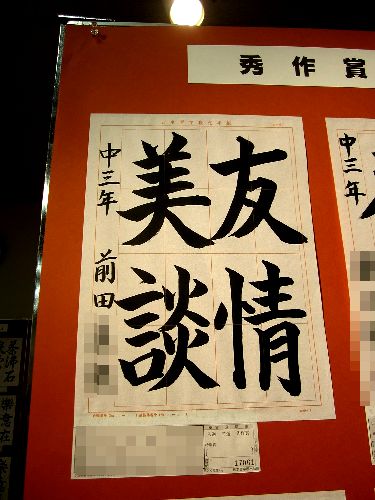 秀作賞
友情
美談
中三年 前田
中三年
17061